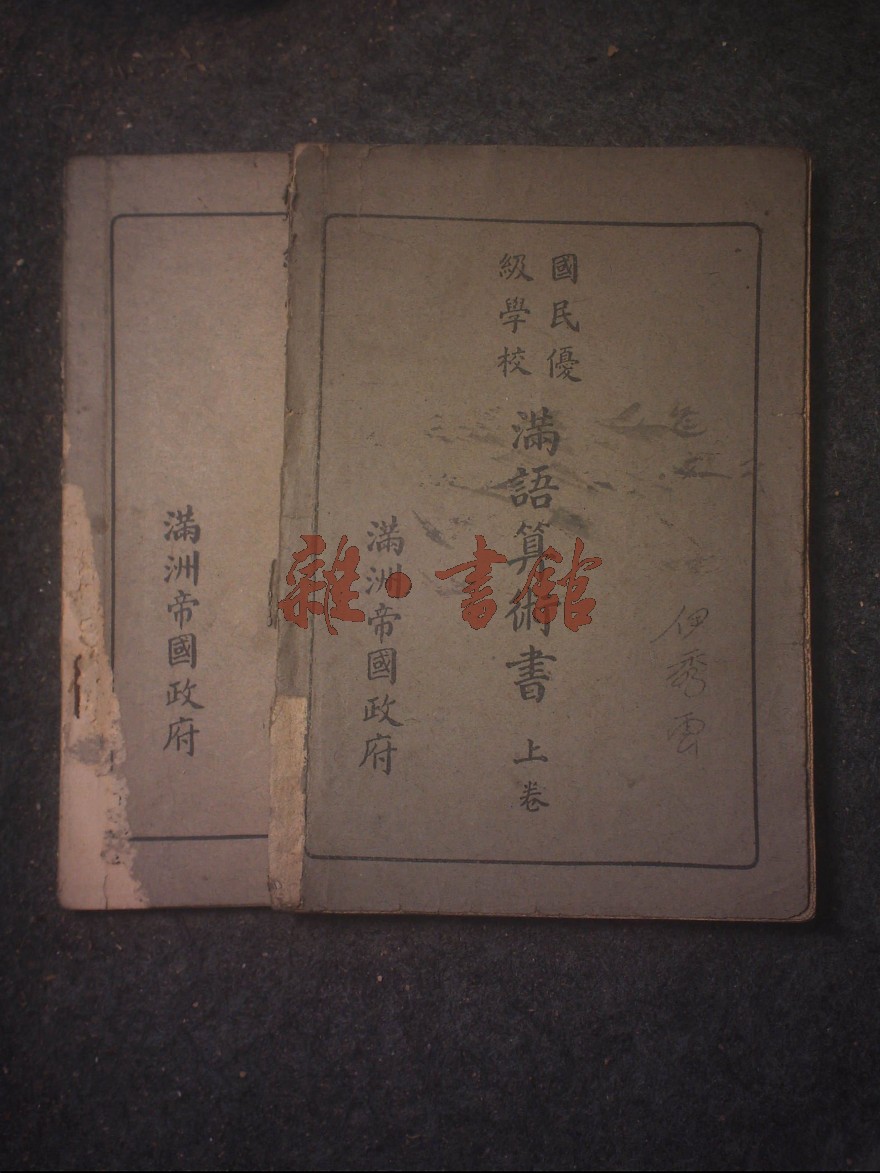 國民優
級學校
滿語算術書 上卷
滿洲帝國政府
伊秀雲
滿洲帝國政府
雜·書館